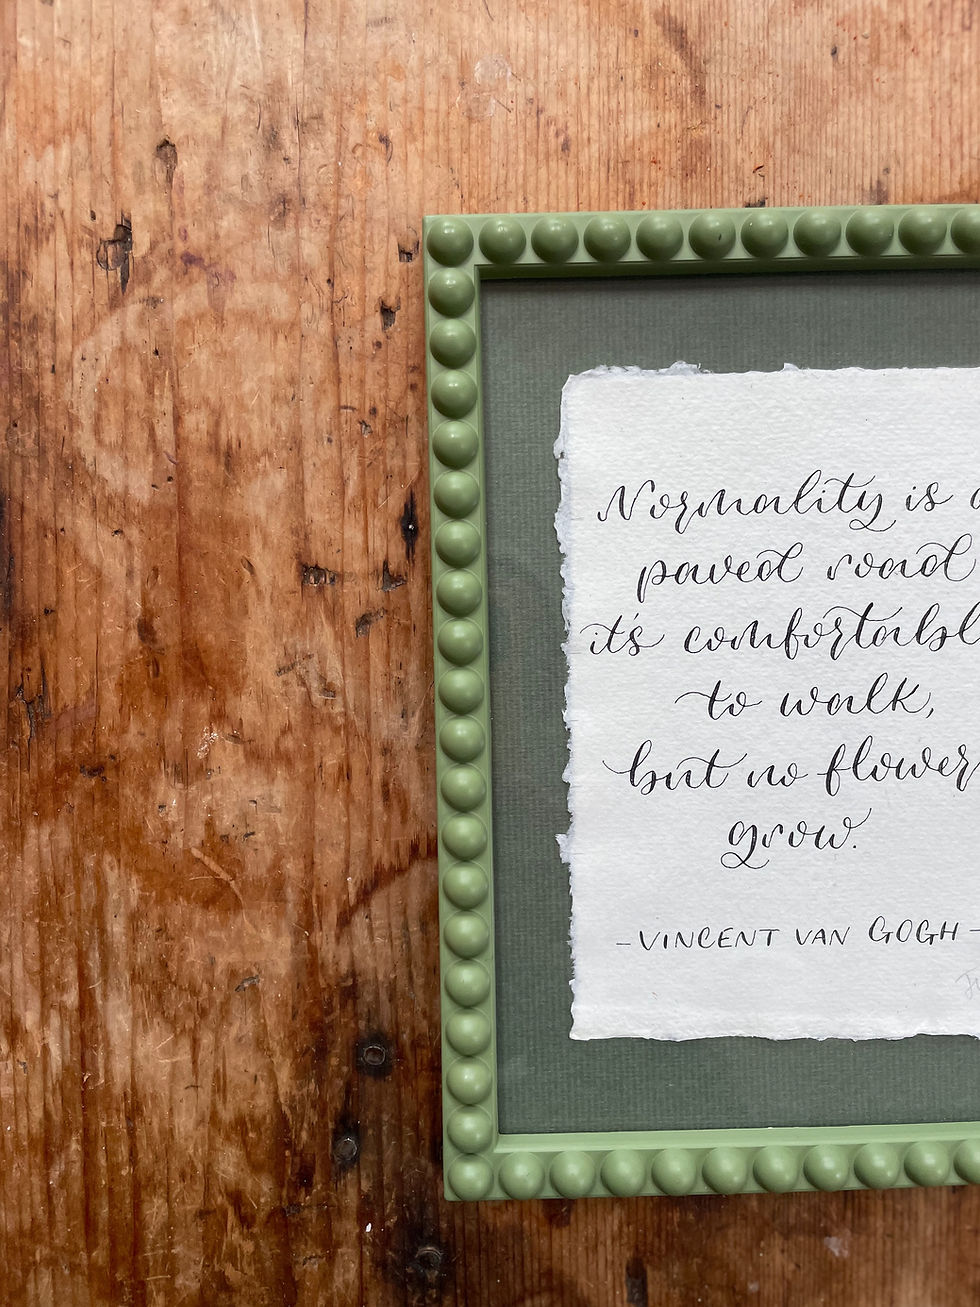 Normality is a
paved road
it's comfortabl
to walk,
but no flower
grow.
-VINCENT VAN GOGH-